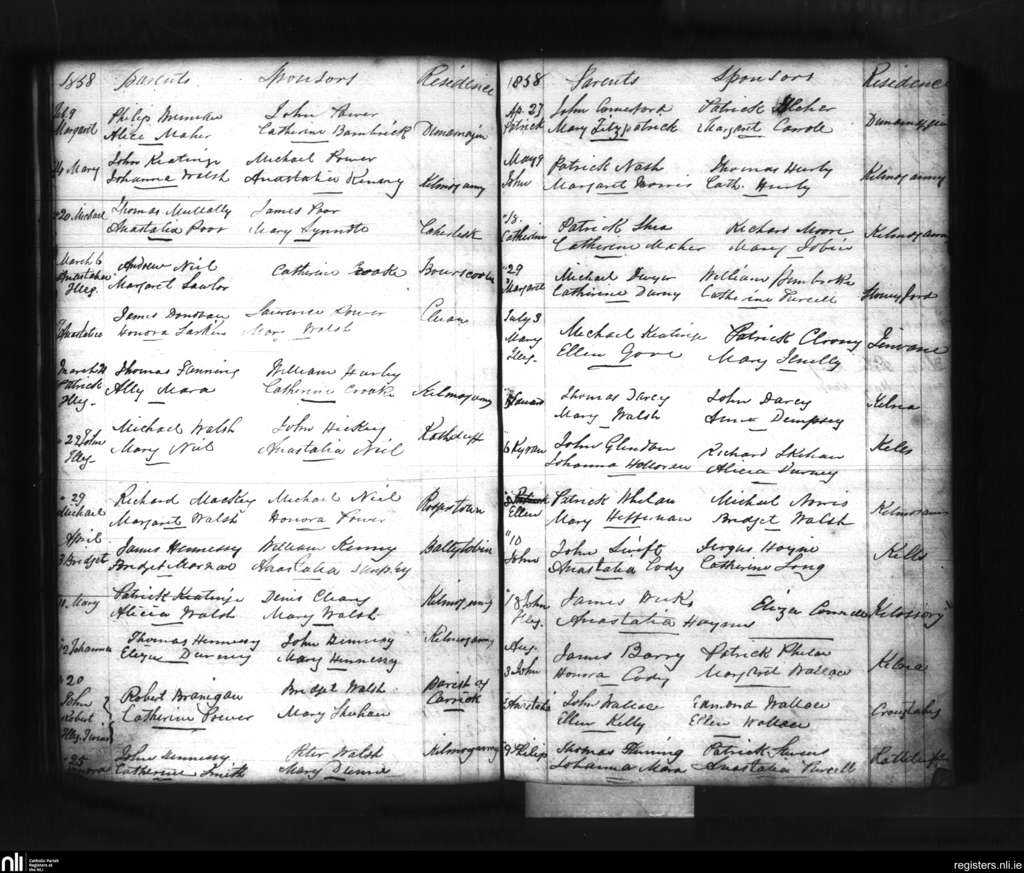 1858 Parents Sponsors Residence
Feb 9 Philip Brennan John Power
Margaret Alice Maher Catherine Bambrick Dunamagin
14 Mary John Keatinge Michael Power
Johanna Walsh Anastatia Kenny Kilmoganny
" 20 Michael Thomas Mullally James Poor
Anastatia Poor Mary Lynnott Caherlesk
March 6 Andrew Niel Catherine Croake Bourscoola
Anastatia Margaret Lawlor
Illeg.
James Donovan Laurence Power Cluan
Anastatia Honora Larkin Mary Walsh
March 21 Thomas Fanning William Hurley
Patrick Ally Mara Catherine Croake Kilmoganny
Illeg.
" 22 John Michael Walsh John Hickey
Illeg. Mary Niel Anastatia Niel
" 29 Richard Mackey Michael Niel
Michael Margaret Walsh Honora Power Rogerstown
April James Hennessy William Kenny Ballytobin
3 Bridget Bridget Anastatia
11. Mary Patrick Keatinge Denis Cleary Kilmoganny
Alicia Walsh Mary Walsh
12 Johanna Thomas Hennessy John Dunney Kilmoganny
Eliza Durney Mary Hennessy
" 20 Bridget Walsh Parish of
John Robert Branigan Mary Shehan Carrick
Robert Catherine Power
Illeg. Twins
" 25 John Hennessy Peter Walsh Kilmoganny
Honora Catherine Smith Mary Dunne
1858 Parents Sponsors Residence
Ap. 27 John Comerford Patrick Maher
Patrick Mary Fitzpatrick Margaret Carrole
May 9 Patrick Nash Thomas Hurly
John Margaret Norris Cath. Hurly Kilmoganny
" 13. Patrick Shea Richard Moore
Catherine Catherine Maher Mary Tobin Kilmoganny
" 29 Michael Dwyer William Pembroke
Margaret Catherine Durny Catherine Purcell Stoneyford
July 3 Michael Keatinge Patrick Cloony
Mary Ellen Gore Mary Tenelly
Illeg.
Thomas Darcy John Darcy
Edward Mary Walsh Anne Dempsey
6 Kyran John Glendon Richard Skehan Kells
Johanna Holloren Alicia Durney
Patrick Whelan Michael Norris
Ellen Mary Heffernan Bridget Walsh Kilmoganny
" 10 John Swift Fergus Hayne Kells
John Anastatia Cody Catherine Long
" 18 John James Weeks Eliza Connolle
Illeg. Anastatia Haynes
Aug. James Barry Patrick Phelan
3 John Honora Cody Margaret Wallace
Anastatia John Wallace Edmond Wallace
Ellen Kelly Ellen Wallace
9 Philip Thomas Fleming Patrick
Johanna Mara Anastatia Purcell
nli Catholic Parish
Registers at
the NLI
registers.nli.ie